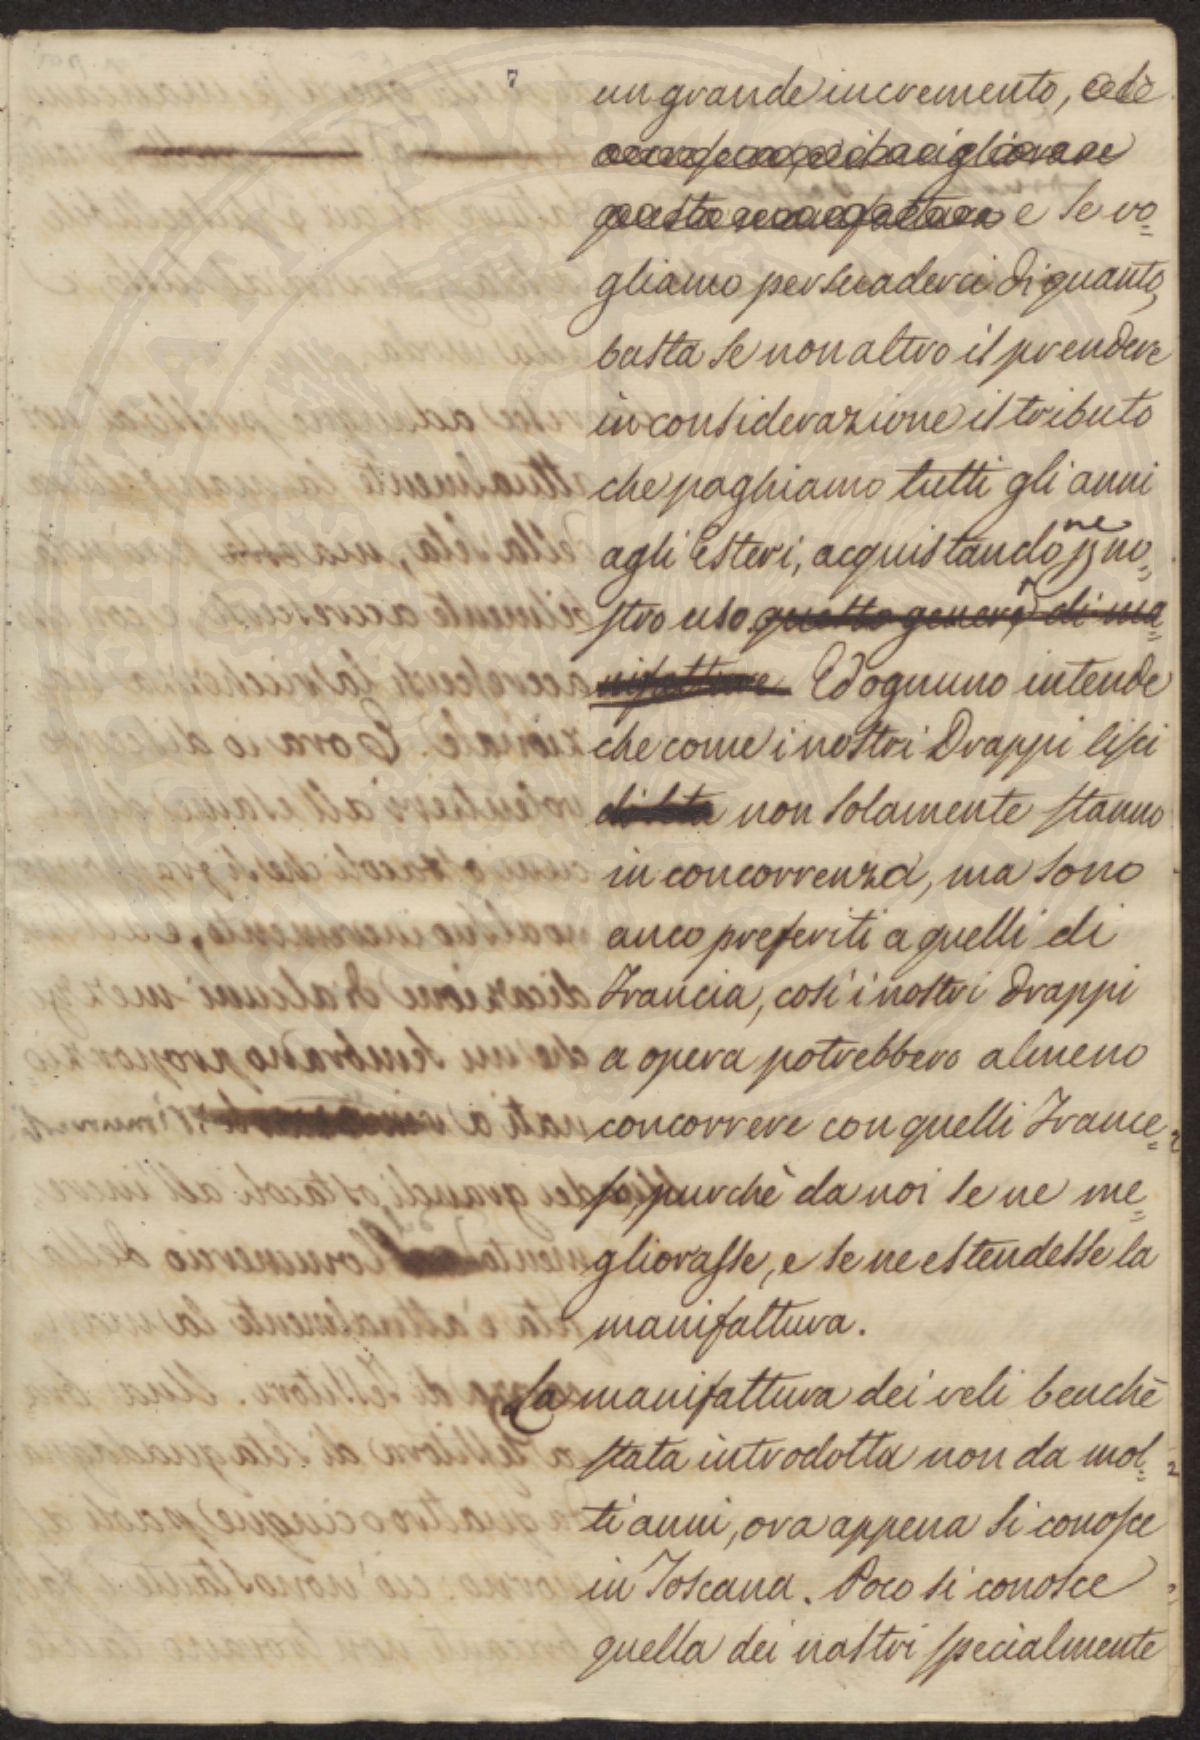 7
un grande incremento, ed è
questa manifattura e se vo=
gliamo persuaderci di quanto,
basta se non altro il prendere
in considerazione il tributo
che paghiamo tutti gli anni
agli Esteri, acquistandone p no=
stro uso questo genere di ma=
nifatture Ed ognuno intende
che come i nostri Drappi lisci
di seta non solamente stanno
in concorrenza, ma sono
anco preferiti a quelli di
Francia, così i nostri Drappi
a opera potrebbero almeno
concorrere con quelli France=
si, purchè da noi se ne me=
gliorasse, e se ne estendesse la
manifattura.
La manifattura dei veli benchè
stata introdotta non da mol=
ti anni, ora appena si conosce
in Toscana. Poco si conosce
quella dei nastri specialmente